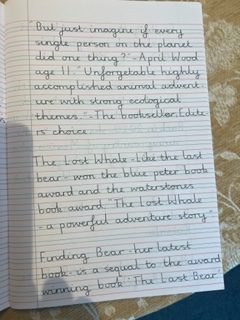 But just imagine if every
single person on the planet
did one thing?"-April Wood
age 11. "Unforgetable highly
accomplished animal advent-
ure with strong ecological
themes."-The bookseller, Edito
rs choice.
The Lost Whale-Like the last
bear-won the blue peter book
award and the waterstones
book award. "The Lost Whale
- a powerful adventure story"
Finding Bear-her latest
book-is a sequal to the award
winning book: The Last Bear